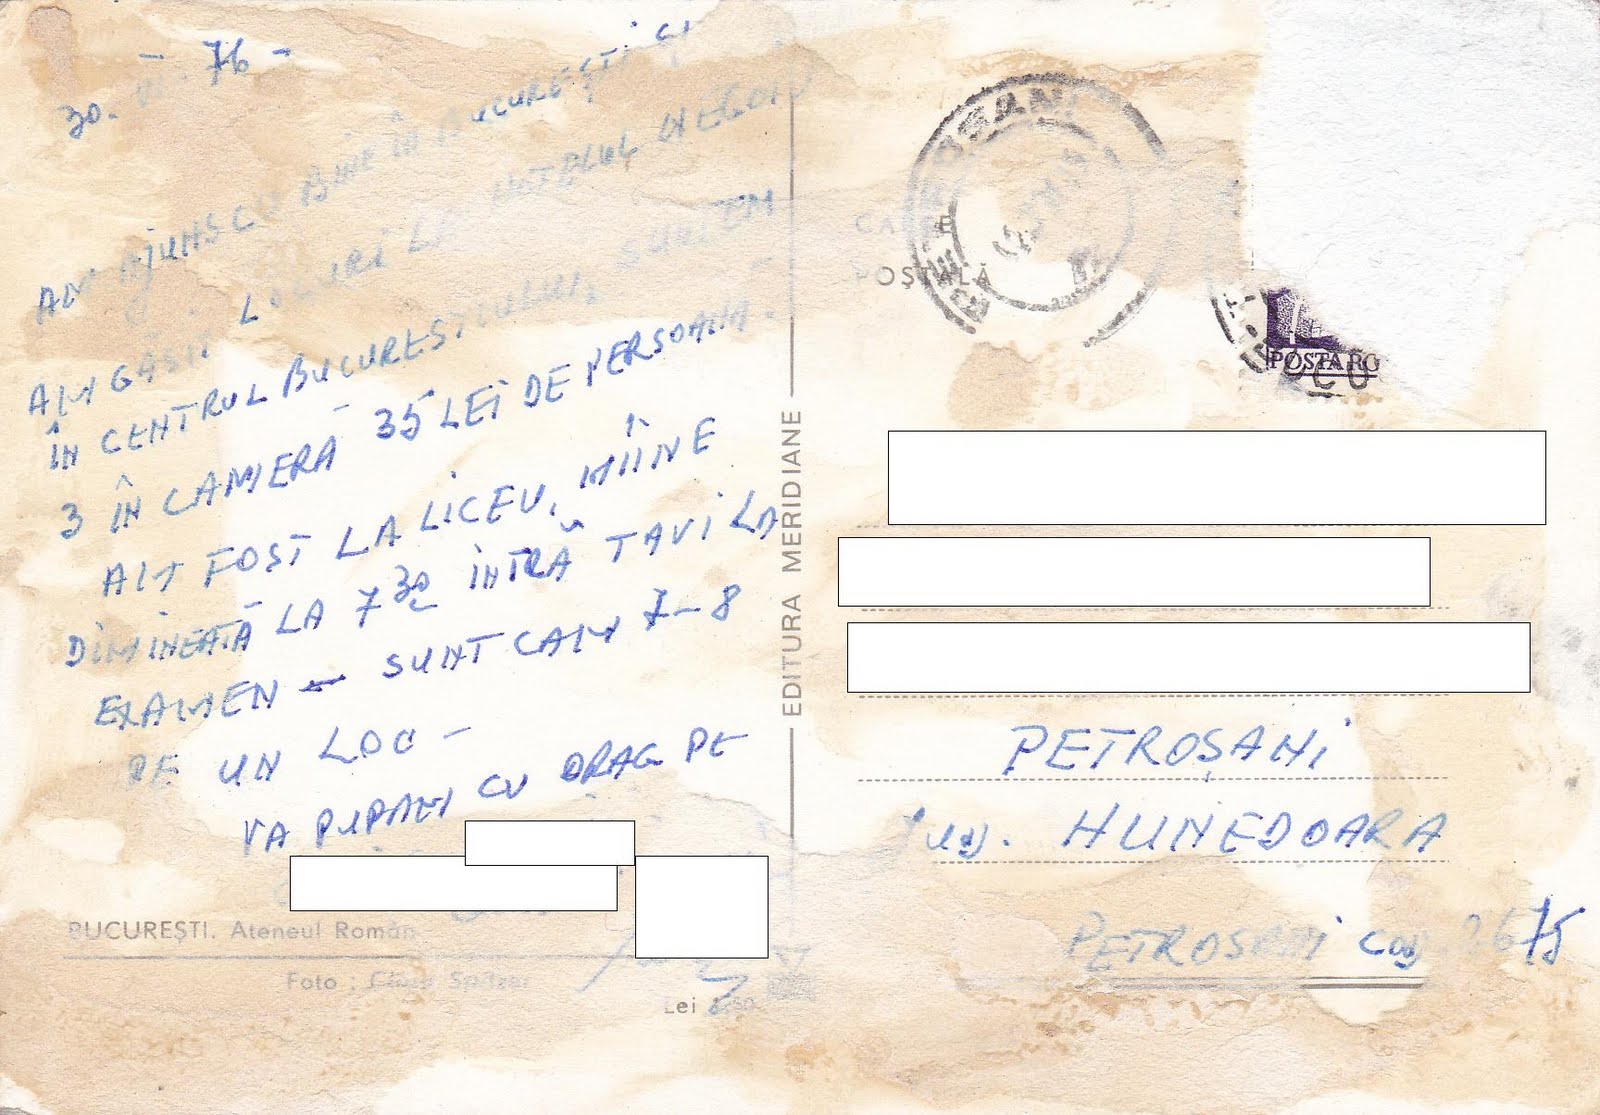 30. VI. 76 -
AM AJUNS CU BINE ÎN BUCUREȘTI ȘI
AM GĂSIT LOCURI LA HOTELUL NEGOIU
ÎN CENTRUL BUCUREȘTIULUI, SUNTEM
3 ÎN CAMERĂ - 35 LEI DE PERSOANĂ.
AM FOST LA LICEU, MÎINE
DIMINEAȚĂ LA 7 30 ÎNTRĂ TAVI LA
EXAMEN - SUNT CAM 7-8
PE UN LOC -
VĂ PUPĂM CU DRAG PE
BUCUREȘTI. Ateneul Român
Foto : Clara Spitzer
Lei
EDITURA MERIDIANE
POȘTALĂ
POSTA RO
PETROȘANI
Jud. HUNEDOARA
PETROȘANI Cod 2675